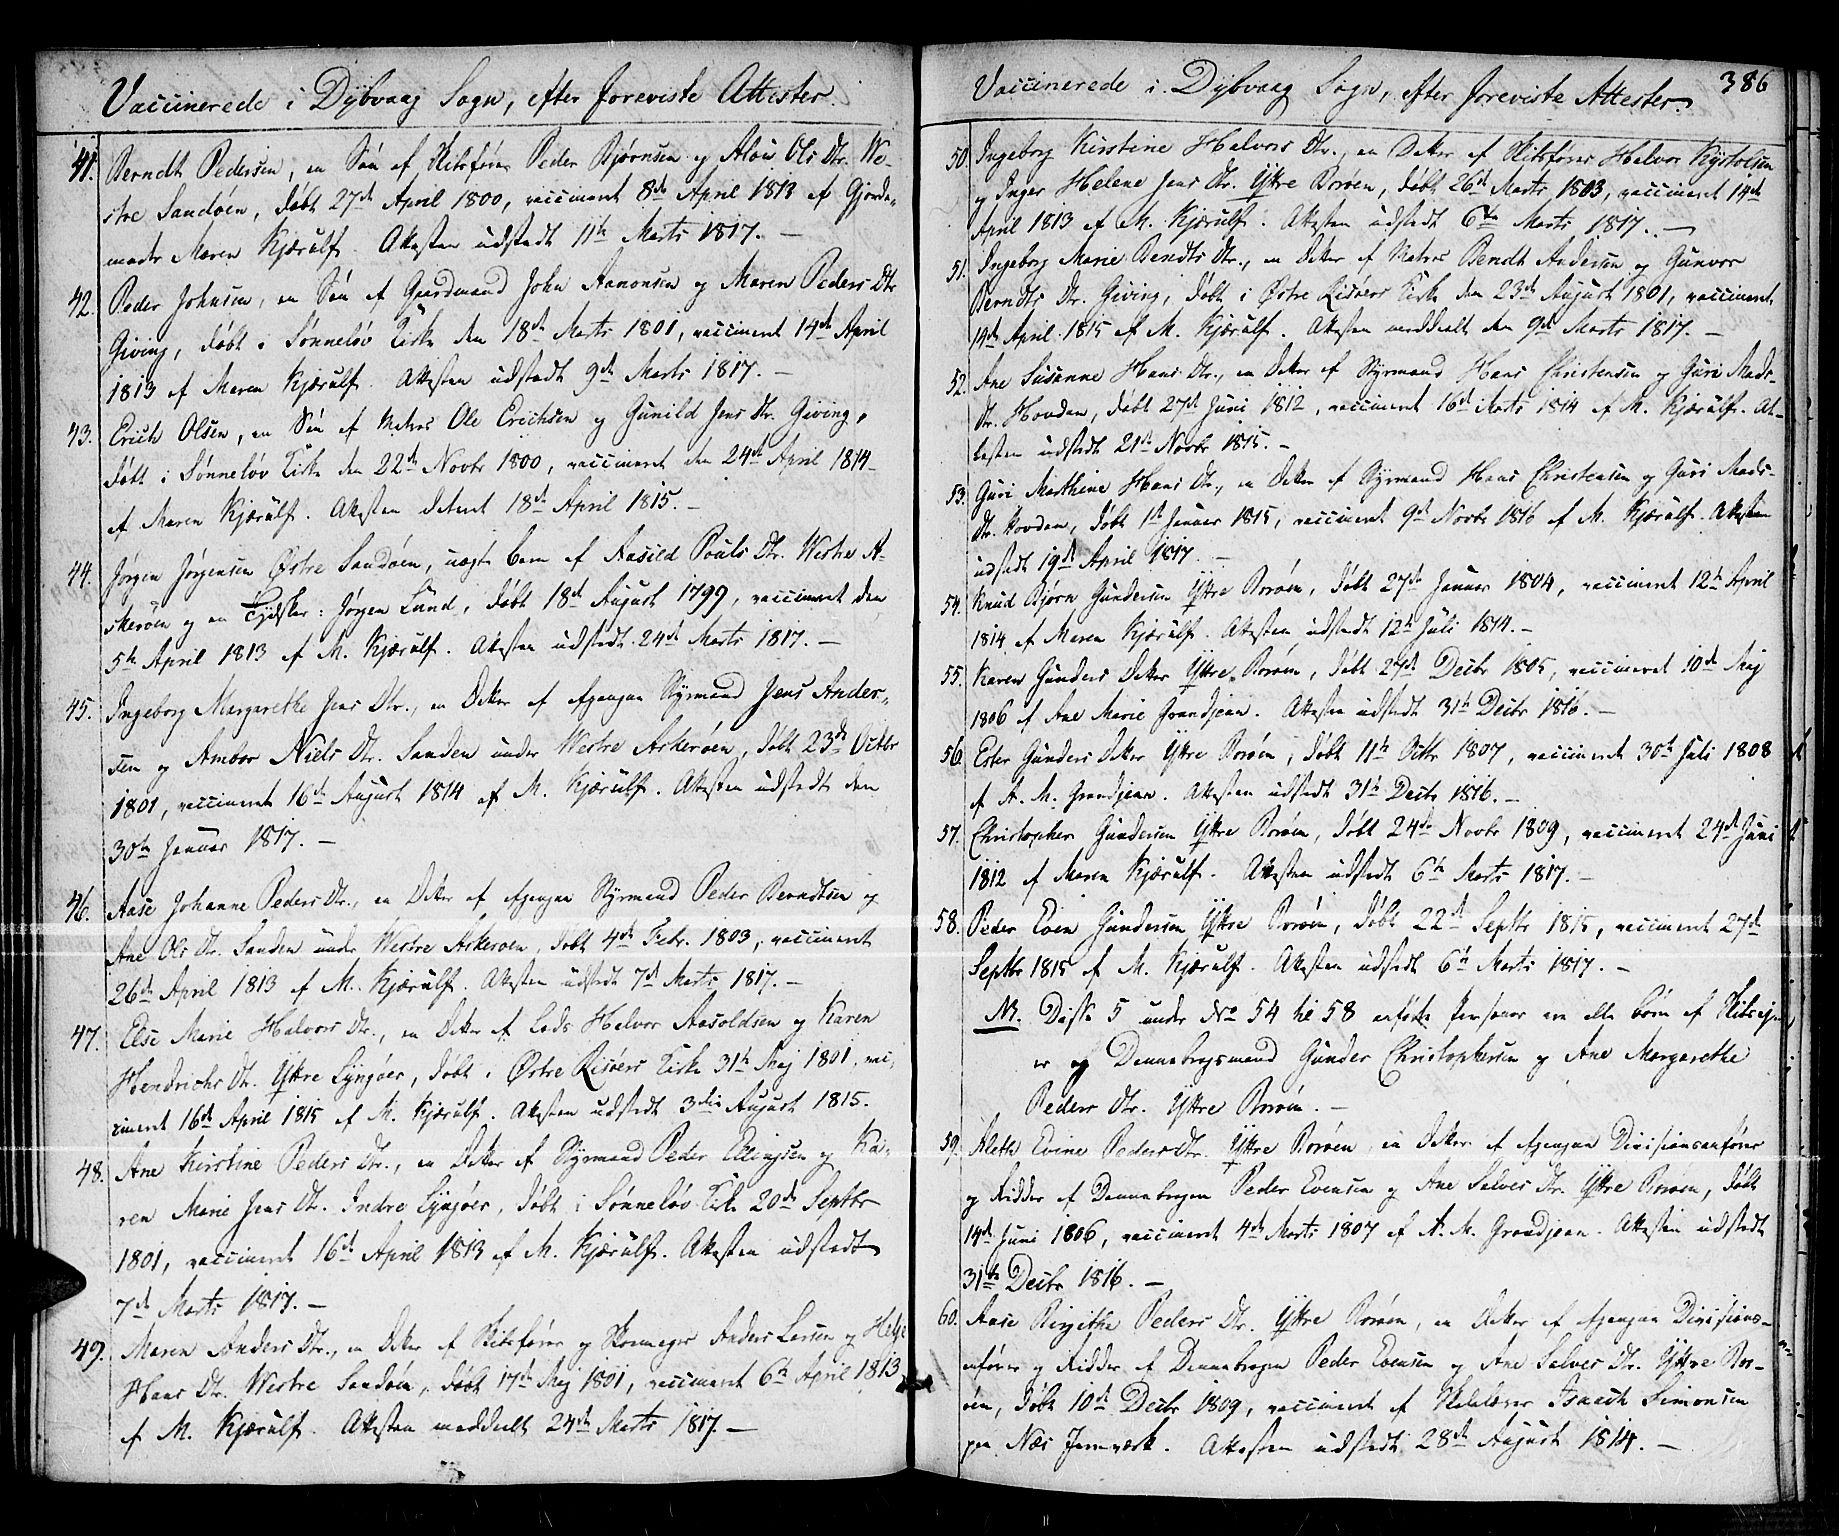 Vaccinerede i Dybvaag Sogn, efter foreviste Attester.
41. Berndt Pedersen, en Søn af Skibsfører Peder Bjørnsen og Alou Ols Dtr. We-
stre Sandøen, døbt 27de April 1800, vaccineret 8de April 1813 af Gjorde-
moder Maren Kjærulf. Attesten udstedt 11te Marts 1817. —
42. Peder Johnsen, en Søn af Gaardmand John Aanonsen og Maren Peders Dtr
Giving, døbt i Sønneløv Kirke den 18de Marts 1801, vaccineret 14de April
1813 af Maren Kjærulf. Attesten udstedt 9de Marts 1817. —
43. Erich Olsen, en Søn af Matros Ole Erichsen og Gunild Jens Dtr. Giving,
døbt i Sønneløv Kirke den 22de Novbr 1800, vaccineret den 24de April 1814
af Maren Kjærulf. Attesten dateret 18de April 1815. —
44. Jørgen Jørgensen Østre Sandøen, uægte Barn af Aasild Pouls Dtr. Westre A-
skerøen og en Tydsker: Jørgen Lund, døbt 18de August 1799, vaccineret den
5te April 1813 af M. Kjærulf. Attesten udstedt 24de Marts 1817. —
45. Ingeborg Margarethe Jens Dtr., en Datter af afgangne Styrmand Jens Ander-
sen og Ambor Niels Dtr. Sanden under Westre Askerøen, døbt 23de Octbr
1801, vaccineret 16de August 1814 af M. Kjærulf. Attesten udstedt den
30te Januar 1817. —
46. Aase Johanne Peders Dtr., en Datter af afgangne Styrmand Peder Berndtsen og
Ane Ols Dtr. Sanden under Westre Askerøen, døbt 4de Febr. 1803, vaccineret
26de April 1813 af M. Kjærulf. Attesten udstedt 7de Marts 1817. —
47. Else Marie Halvors Dtr., en Datter af Lods Halvor Aasoldsen og Karen
Hendrichs Dtr. Yttre Lyngøer, døbt i Østre Risøers Kirke 31te Maj 1801, vac-
cineret 16de April 1815 af M. Kjærulf. Attesten udstedt 3die August 1815.
48. Ane Kirstine Peders Dtr., en Datter af Styrmand Peder Ellingsen og Ka-
ren Marie Jens Dtr. Indre Lyngøer, døbt i Sønneløv Kirke 20de Septbr
1801, vaccineret 16de April 1813 af M. Kjærulf. Attesten udstedt
7de Marts 1817. —
49. Maren Anders Dtr., en Datter af Skibsfører og Anders Larsen og Helje
Hans Dtr. Westre Sandøen, døbt 17de Maj 1801, vaccineret 6te April 1813
af M. Kjærulf. Attesten meddeelt 24de Marts 1817. —
Vaccinerede i Dybvaag Sogn, efter foreviste Attester.
386
50. Ingeborg Kirstine Halvors Dtr., en Datter af Skibsfører Halvor Kystolsen
og Inger Helene Jens Dtr. Yttre Borøen, døbt 26de Marts 1803, vaccineret 14de
April 1813 af M. Kjærulf. Attesten udstedt 6te Marts 1817. —
51. Ingeborg Marie Bendts Dtr., en Datter af Matros Bendt Andersen og Gunvor
Berndts Dtr. Giving, døbt i Østre Risøers Kirke den 23de August 1801, vaccineret
14de April 1815 af M. Kjærulf. Attesten meddeelt den 9de Marts 1817. —
52. Ane Susanne Hans Dtr., en Datter af Styrmand Hans Christensen og Guri Mads-
Dtr. Hovden, døbt 27de Juni 1812, vaccineret 16de Marts 1814 af M. Kjærulf. At-
testen udstedt 21de Novbr 1815. —
53. Guri Marthine Hans Dtr., en Datter af Styrmand Hans Christensen og Guri Mads-
Dtr. Hovden, døbt 1te Januar 1815, vaccineret 9de Novbr 1816 af M. Kjærulf. Attesten
udstedt 19de April 1817. —
54. Knud Bjørn Gundersen Yttre Borøen, døbt 27de Januar 1804, vaccineret 12te April
1814 af Maren Kjærulf. Attesten udstedt 12te Juli 1814. —
55. Karen Gunders Datter Yttre Borøen, døbt 27de Decbr 1805, vaccineret 10de Maj
1806 af Ane Marie Grandjean. Attesten udstedt 31te Decbr 1816. —
56. Ester Gunders Datter Yttre Borøen, døbt 11te Octbr 1807, vaccineret 30te Juli 1808
af A. M. Grandjean. Attesten udstedt 31te Decbr 1816. —
57. Christopher Gundersen Yttre Borøen, døbt 24de Novbr 1809, vaccineret 24de Juni
1812 af Maren Kjærulf. Attesten udstedt 6te Marts 1817. —
58. Peder Even Gundersen Yttre Borøen, døbt 22de Septbr 1815, vaccineret 27de
Septbr 1815 af M. Kjærulf. Attesten udstedt 6te Marts 1817. —
NB. Disse 5 under No 54 til 58 anførte Personer ere alle børn af Skibsejer
er og Dannebrogsmand Gunder Christophersen og Ane Margarethe
Peders Dtr. Yttre Borøen. —
59. Aleth Evine Peders Dtr. Yttre Borøen, en Datter af afgangne Divisionsanfører
og Ridder af Dannebrogen Peder Evensen og Ane Salves Dtr. Yttre Borøen, døbt
14de Juni 1806, vaccineret 4de Marts 1807 af A. M. Grandjean. Attesten udstedt
31te Decbr 1816. —
60. Aase Birgithe Peders Dtr. Yttre Borøen, en Datter af afgangne Divisions-
anfører og Ridder af Dannebrogen Peder Evensen og Ane Salves Dtr. Yttre Bor-
øen, døbt 10de Decbr 1809, vaccineret af Skolelærer Isaach Simonsen
paa Næs Jernværk. Attesten udstedt 28de August 1814. —